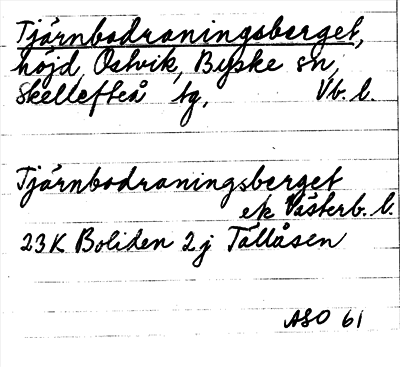 Tjärnbodraningsberget,
höjd, Ostvik, Byske sn,
Skellefteå tg, Vb. l.
Tjärnbodraningsberget
ek Västerb. l.
23K Boliden 2j Tallåsen
ASO 61